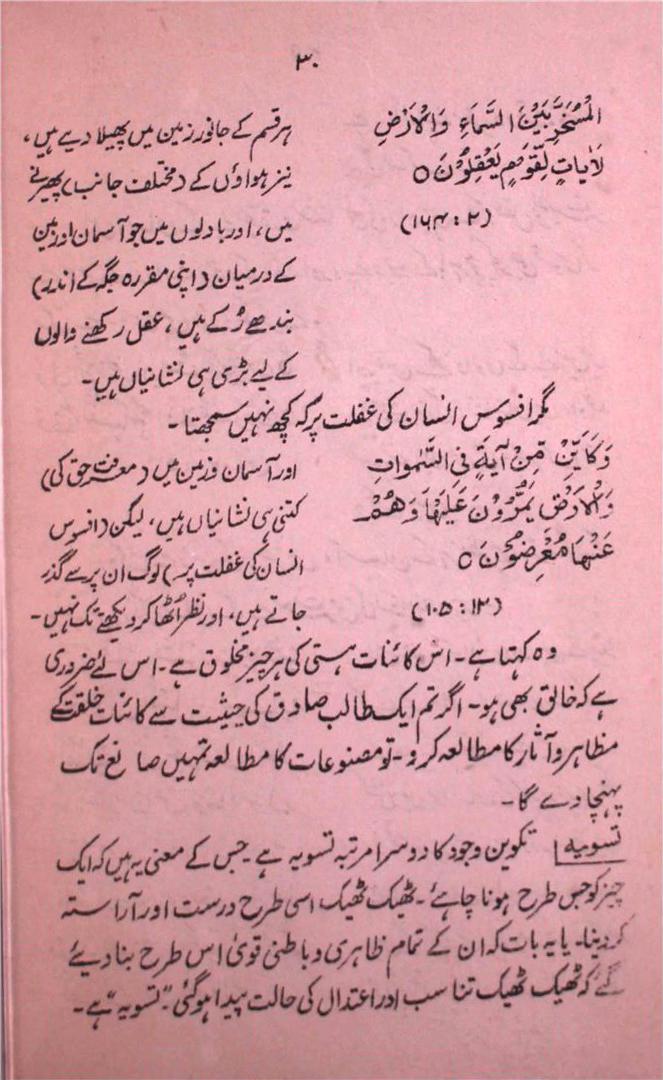 ۳۰
الْمُسَخَّرِ بَيْنَ السَّمَاءِ وَالْاَرْضِ
لَاٰيَاتٍ لِّقَوْمٍ يَعْقِلُوْنَ ○
(۲ : ۱۶۴)
ہر قسم کے جانور زمین میں پھیلا دیے ہیں،
نیز ہواؤں کے (مختلف جانب) پھیرنے
میں، اور بادلوں میں جو آسمان اور زمین
کے درمیان (اپنی مقررہ جگہ کے اندر)
بندھے رُکے ہیں، عقل رکھنے والوں
کے لیے بڑی ہی نشانیاں ہیں۔
مگر افسوس انسان کی غفلت پر کہ کچھ نہیں سمجھتا۔
وَكَاَيِّنْ مِّنْ آيَةٍ فِي السَّمٰوٰتِ
وَالْاَرْضِ يَمُرُّوْنَ عَلَيْهَا وَهُمْ
عَنْهَا مُعْرِضُوْنَ ○
(۱۲ : ۱۰۵)
اور آسمان و زمین میں (معرفتِ حق کی)
کتنی ہی نشانیاں ہیں، لیکن (افسوس
انسان کی غفلت پر) لوگ ان پر سے گذر
جاتے ہیں، اور نظر اُٹھا کر دیکھتے تک نہیں۔
وہ کہتا ہے۔ اس کائنات ہستی کی ہر چیز مخلوق ہے۔ اس لئے ضروری
ہے کہ خالق بھی ہو۔ اگر تم ایک طالب صادق کی حیثیت سے کائنات خلقت کے
مظاہر و آثار کا مطالعہ کرو۔ تو مصنوعات کا مطالعہ تمہیں صانع تک
پہنچا دے گا۔
تسویہ | تکوین وجود کا دوسرا مرتبہ تسویہ ہے جس کے معنی یہ ہیں کہ ایک
چیز کو جس طرح ہونا چاہئے۔ ٹھیک ٹھیک اسی طرح درست اور آراستہ
کر دینا۔ یا یہ بات کہ ان کے تمام ظاہری و باطنی قویٰ اس طرح بنا دیئے
گئے کہ ٹھیک ٹھیک تناسب اور اعتدال کی حالت پیدا ہوگئی۔ "تسویہ" ہے۔